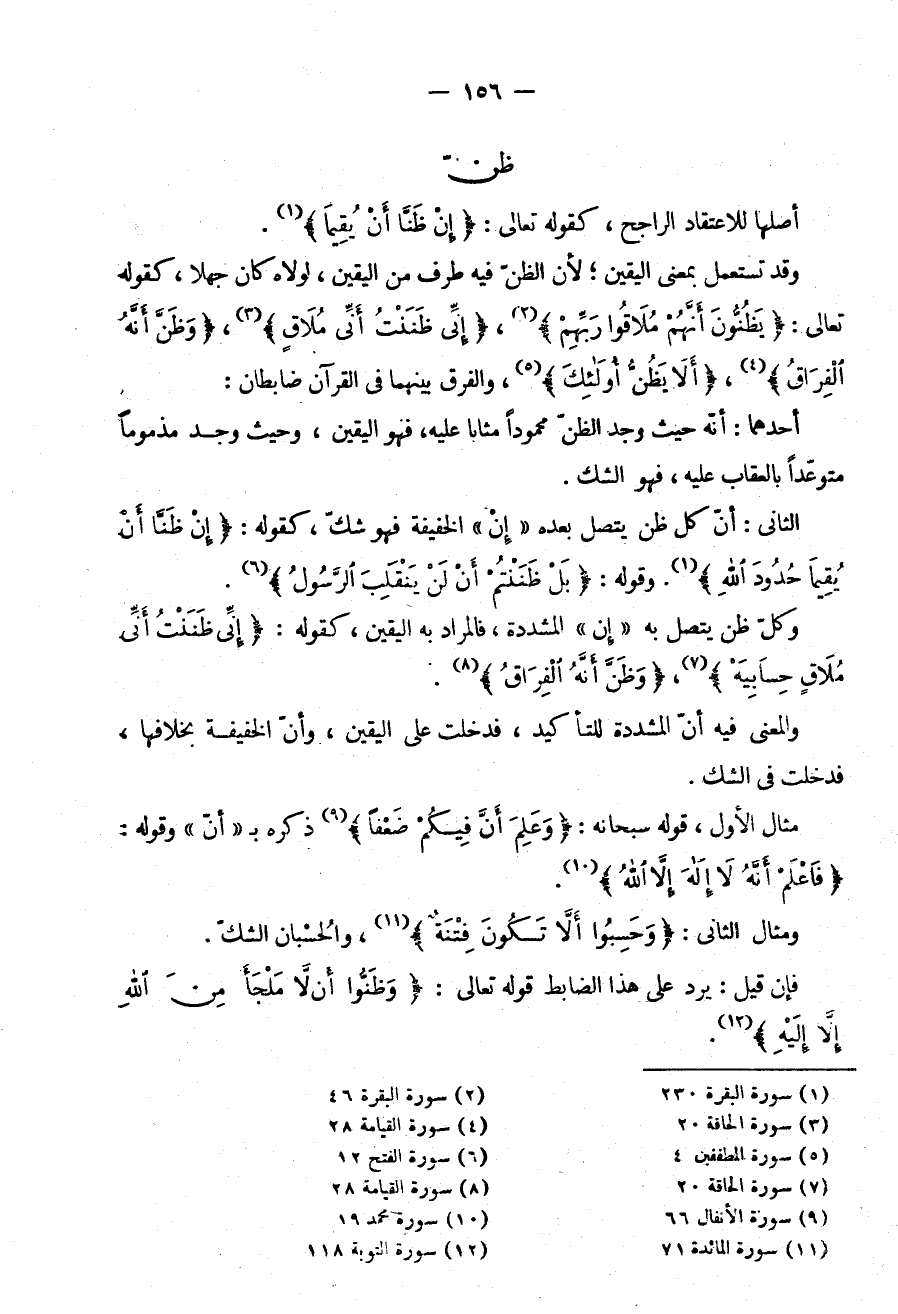 — ١٥٦ —
ظنّ
أصلها للاعتقاد الراجح ، كقوله تعالى : ﴿ إِنْ ظَنَّا أَنْ يُقِيمَا ﴾(١) .
وقد تستعمل بمعنى اليقين ؛ لأن الظنّ فيه طرف من اليقين ، لولاه كان جهلا ، كقوله
تعالى : ﴿ يَظُنُّونَ أَنَّهُمْ مُلَاقُوا رَبِّهِمْ ﴾(٢) ، ﴿ إِنِّى ظَنَنْتُ أَنِّى مُلَاقٍ ﴾(٣) ، ﴿ وَظَنَّ أَنَّهُ
ٱلْفِرَاقُ ﴾(٤) ، ﴿ أَلَا يَظُنُّ أُولَٰئِكَ ﴾(٥) ، والفرق بينهما فى القرآن ضابطان :
أحدهما : أنّه حيث وجد الظنّ محموداً مثابا عليه، فهو اليقين ، وحيث وجد مذموماً
متوعّداً بالعقاب عليه ، فهو الشك .
الثانى : أنّ كل ظن يتصل بعده « إِنْ » الخفيفة فهو شكّ ، كقوله : ﴿ إِنْ ظَنَّا أَنْ
يُقِيمَا حُدُودَ ٱللهِ ﴾(١). وقوله : ﴿ بَلْ ظَنَنْتُمْ أَنْ لَنْ يَنْقَلِبَ ٱلرَّسُولُ ﴾(٦) .
وكلّ ظن يتصل به « إن » المشددة ، فالمراد به اليقين ، كقوله : ﴿ إِنِّى ظَنَنْتُ أَنِّى
مُلَاقٍ حِسَابِيَهْ ﴾(٧)، ﴿ وَظَنَّ أَنَّهُ ٱلْفِرَاقُ ﴾(٨) .
والمعنى فيه أنّ المشددة للتأكيد ، فدخلت على اليقين ، وأنّ الخفيفة بخلافها ،
فدخلت فى الشك .
مثال الأول ، قوله سبحانه : ﴿ وَعَلِمَ أَنَّ فِيكُمْ ضَعْفاً ﴾(٩) ذكره بـ « أنّ » وقوله :
﴿ فَاعْلَمْ أَنَّهُ لَا إِلَٰهَ إِلَّا ٱللهُ ﴾(١٠).
ومثال الثانى : ﴿ وَحَسِبُوا أَلَّا تَكُونَ فِتْنَةٌ ﴾(١١) ، والحُسْبان الشكّ .
فإن قيل : يرد على هذا الضابط قوله تعالى : ﴿ وَظَنُّوا أَن لَّا مَلْجَأَ مِنَ ٱللهِ
إِلَّا إِلَيْهِ ﴾(١٢).
(١) سورة البقرة ٢٣٠ (٢) سورة البقرة ٤٦
(٣) سورة الحاقة ٢٠ (٤) سورة القيامة ٢٨
(٥) سورة المطففين ٤ (٦) سورة الفتح ١٢
(٧) سورة الحاقة ٢٠ (٨) سورة القيامة ٢٨
(٩) سورة الأنفال ٦٦ (١٠) سورة محمد ١٩
(١١) سورة المائدة ٧١ (١٢) سورة التوبة ١١٨